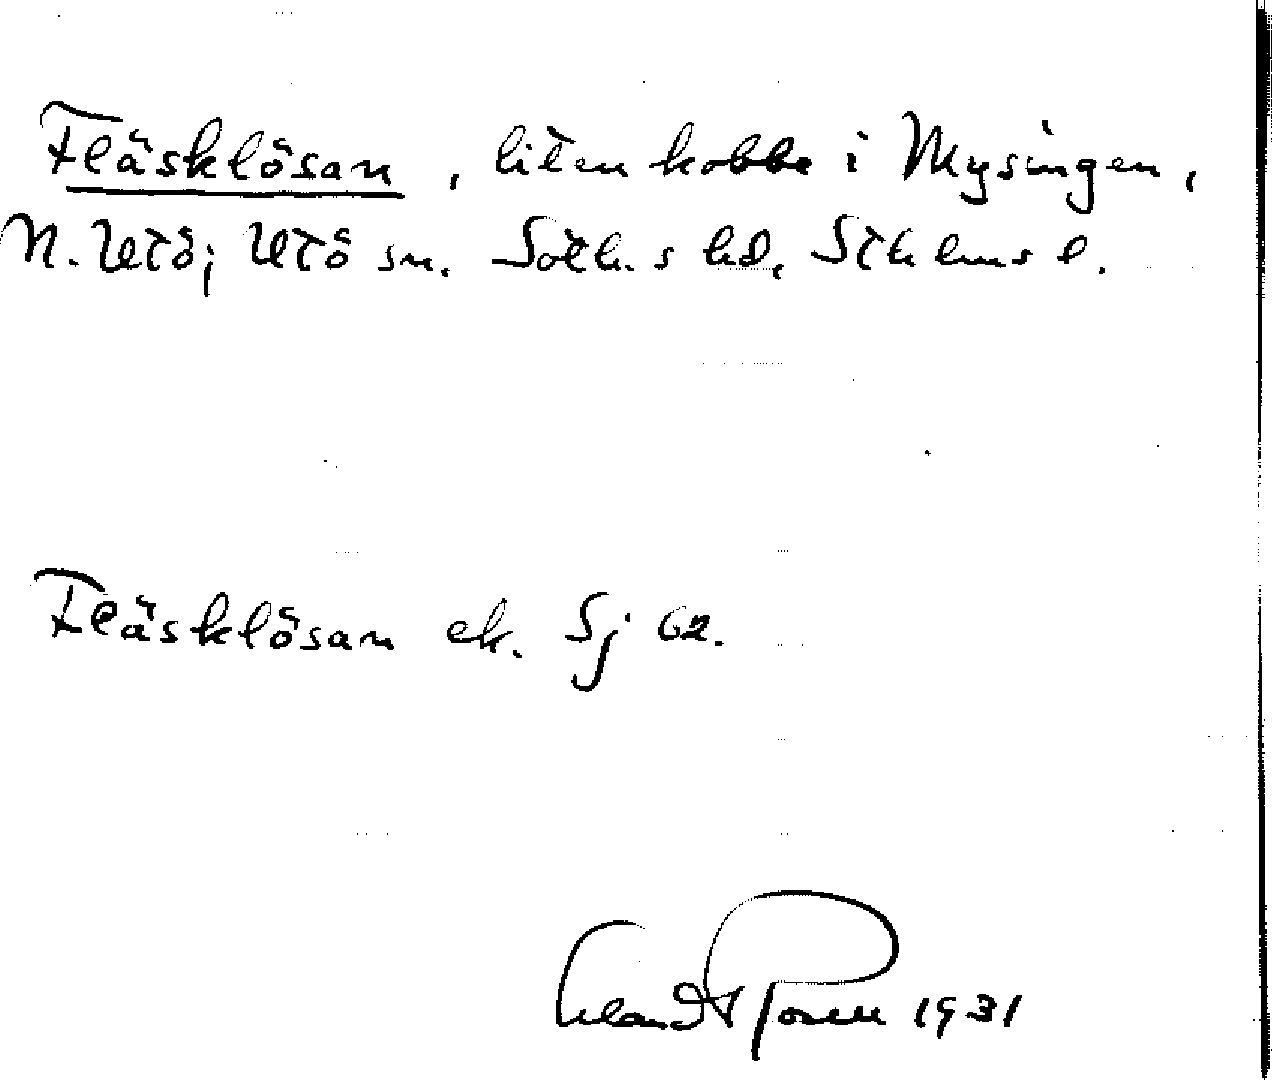 Fläsklösan, liten kobbe i Mysingen,
N. Utö; Utö sn. Soth.s hd, Sthlms l.
Fläsklösan ek. Sj 62.
1931